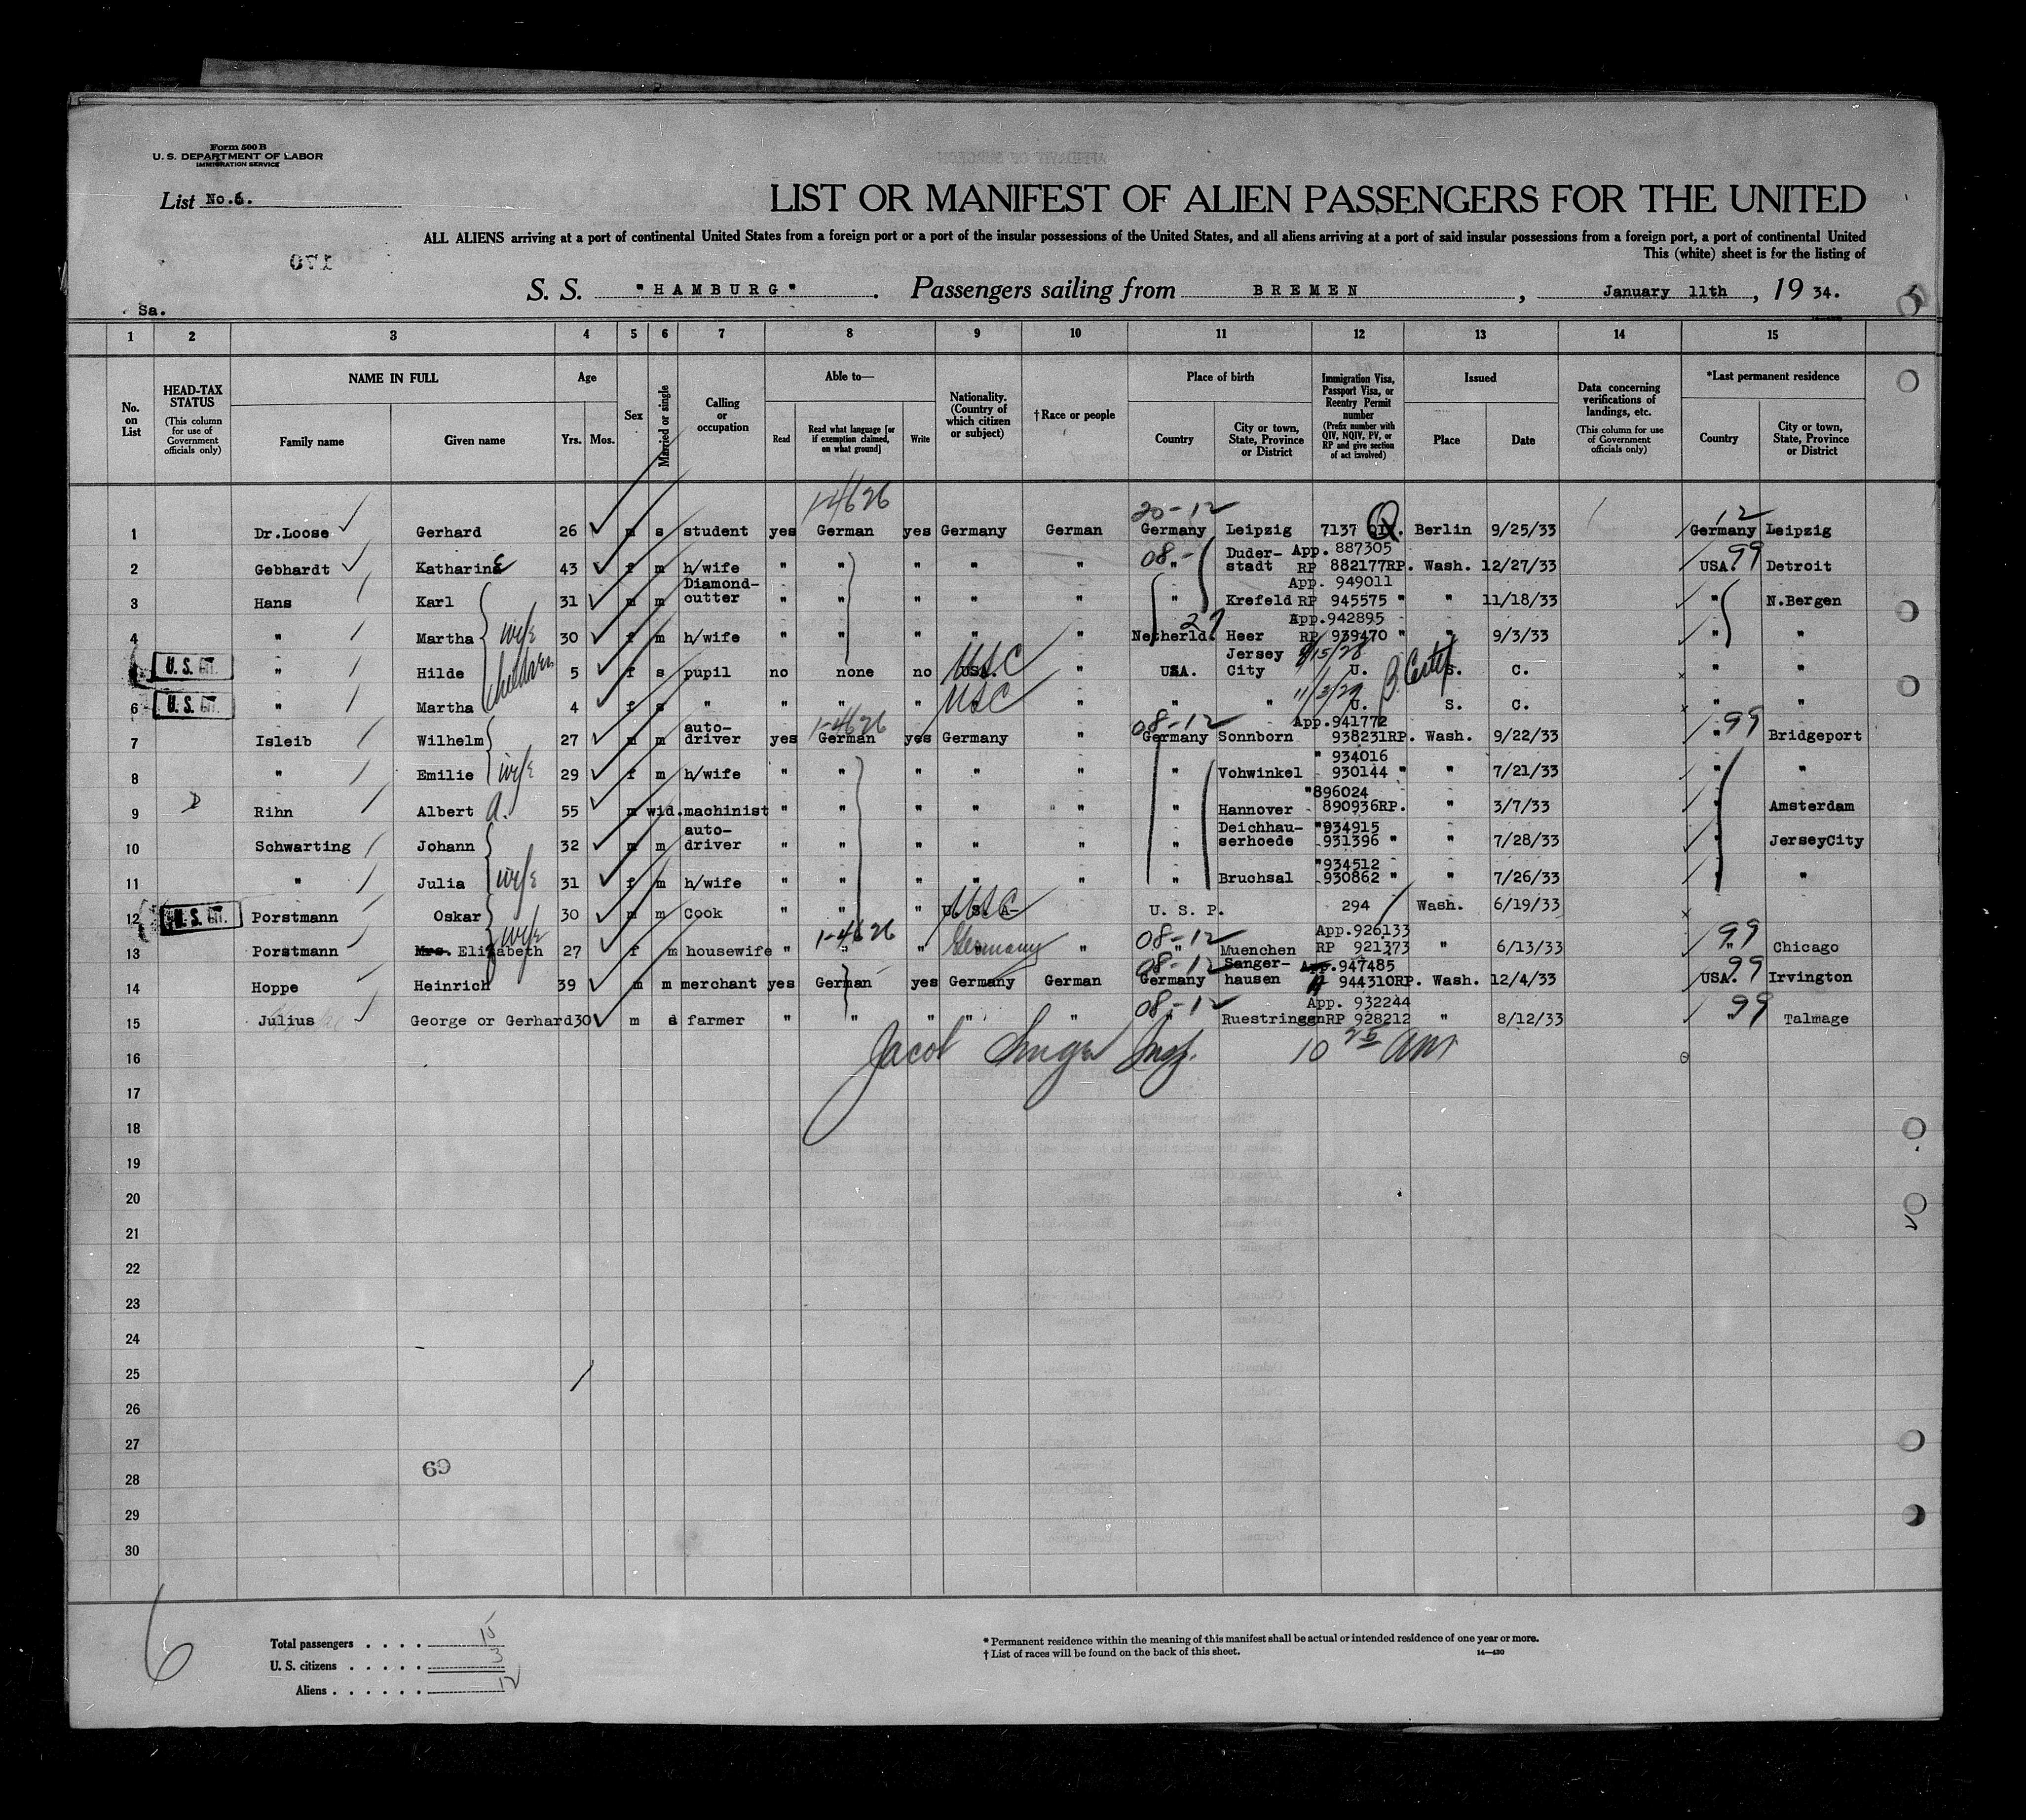 Form 500 B
U. S. DEPARTMENT OF LABOR
IMMIGRATION SERVICE
List No.6.
LIST OR MANIFEST OF ALIEN PASSENGERS FOR THE UNITED
ALL ALIENS arriving at a port of continental United States from a foreign port or a port of the insular possessions of the United States, and all aliens arriving at a port of said insular possessions from a foreign port, a port of continental United
This (white) sheet is for the listing of
170
S. S. "HAMBURG". Passengers sailing from BREMEN, January 11th, 19 34.
Sa.
1 2 3 4 5 6 7 8 9 10 11 12 13 14 15
No. on List
HEAD-TAX STATUS (This column for use of Government officials only)
NAME IN FULL
Family name Given name
Age
Yrs. Mos.
Sex
Married or single
Calling or occupation
Able to—
Read
Read what language [or if exemption claimed, on what ground]
Write
Nationality. (Country of which citizen or subject)
†Race or people
Place of birth
Country
City or town, State, Province or District
Immigration Visa, Passport Visa, or Reentry Permit number (Prefix number with QIV, NQIV, PV, or RP and give section of act involved)
Issued
Place Date
Data concerning verifications of landings, etc. (This column for use of Government officials only)
*Last permanent residence
Country
City or town, State, Province or District
1-4626 20-12 12
1 Dr.Loose Gerhard 26 m s student yes German yes Germany German Germany Leipzig 7137 QIV. Q Berlin 9/25/33 Germany Leipzig
08- App. 887305 99
2 Gebhardt Katharine 43 f m h/wife " " " " " " Duder-stadt RP 882177RP. Wash. 12/27/33 USA. Detroit
App. 949011
3 Hans Karl 31 m m Diamond-cutter " " " " " " Krefeld RP 945575 " " 11/18/33 " N.Bergen
wife 27 App.942895
4 " Martha 30 f m h/wife " " " " " Netherld. Heer RP 939470 " " 9/3/33 " "
children
5 U.S. CIT. " Hilde 5 f s pupil no none no USA. USC " USA. Jersey City 9/15/28 U. S. C. " "
6 U.S. CIT. " Martha 4 f s " " " " " USC " " " 11/2/29 U. S. C. " "
1-4626 08-12 App.941772 99
7 Isleib Wilhelm 27 m m auto-driver yes German yes Germany " Germany Sonnborn 938231RP. Wash. 9/22/33 " Bridgeport
wife " 934016
8 " Emilie 29 f m h/wife " " " " " " Vohwinkel 930144 " " 7/21/33 " "
"896024
9 Rihn Albert A. 55 m wid. machinist " " " " " " Hannover 890936RP. " 3/7/33 " Amsterdam
"934915
10 Schwarting Johann 32 m m auto-driver " " " " " " Deichhau-serhoede 931396 " " 7/28/33 " JerseyCity
wife "934512
11 " Julia 31 f m h/wife " " " " " " Bruchsal 930862 " " 7/26/33 " "
12 U.S. CIT. Porstmann Oskar 30 m m Cook " " " U.S.A- USC U. S. P. 294 Wash. 6/19/33
wife 1-4626 08-12 App.926133 99
13 Porstmann Mrs. Elizabeth 27 f m housewife " " " Germany " " Muenchen RP 921373 " 6/13/33 " Chicago
08-12 App.947485 99
14 Hoppe Heinrich 39 m m merchant yes German yes Germany German Germany Sanger-hausen 944310RP. Wash. 12/4/33 USA. Irvington
08-12 App. 932244 99
15 Julius George or Gerhard 30 m s farmer " " " " " " Ruestringen RP 928212 " 8/12/33 " Talmage
16 Jacob Insp. 10 25 am
17
18
19
20
21
22
23
24
25
26
27
28
29
30
69
6
Total passengers . . . . 15
U. S. citizens . . . . . 3
Aliens . . . . . . 12
* Permanent residence within the meaning of this manifest shall be actual or intended residence of one year or more.
† List of races will be found on the back of this sheet.
14—430